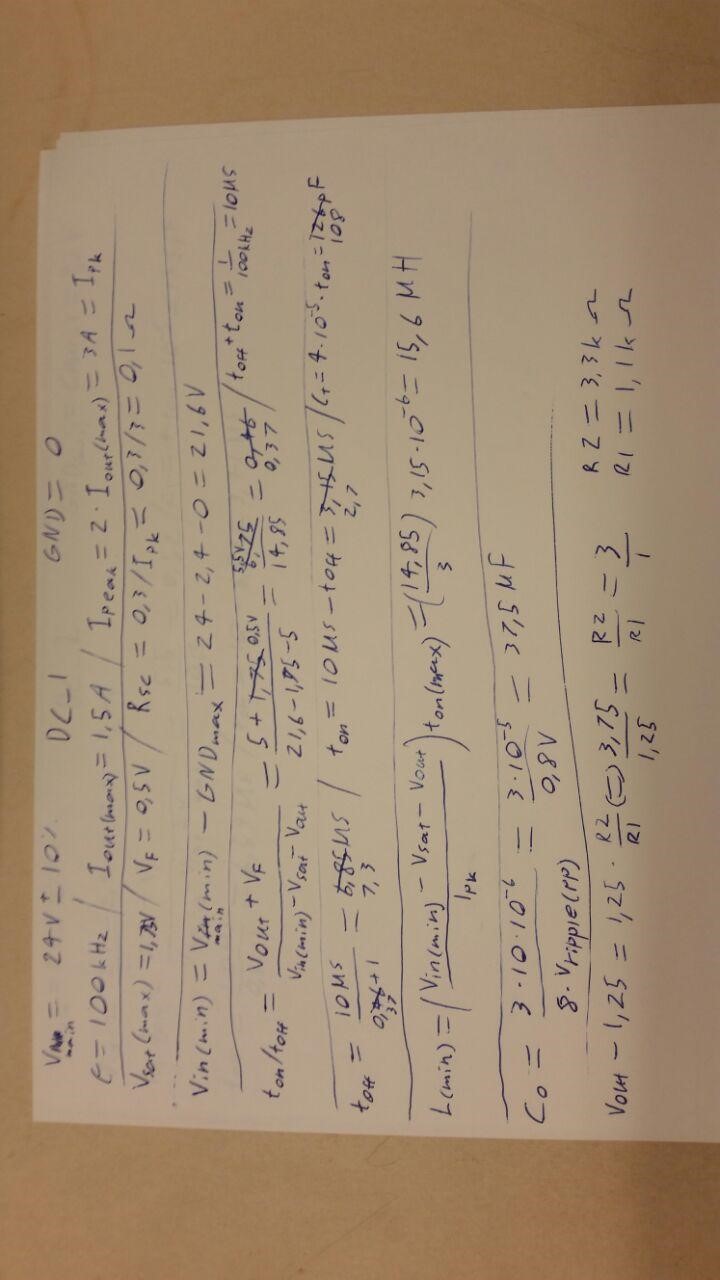 Vmain = 24V ± 10% DC_1 GND = 0
f = 100kHz / Iout(max) = 1,5A / Ipeak = 2 · Iout(max) = 3A = Ipk
Vsat(max) = / VF = 0,5V / Rsc = 0,3/Ipk = 0,3/3 = 0,1 Ω
Vin(min) = Vmain(min) - GNDmax = 24 - 2,4 - 0 = 21,6V
ton/toff = (Vout + VF)/(Vin(min) - Vsat - Vout) = (5 + 0,5V)/(21,6 - 1,75 - 5) = 5,5V/14,85 = 0,37 / toff + ton = 1/100kHz = 10µs
toff = 10µs/(0,37 + 1) = 7,3 µs / ton = 10µs - toff = 2,7 µs / CT = 4·10^-5 · ton = 108 pF
L(min) = ((Vin(min) - Vsat - Vout)/Ipk) ton(max) = (14,85/3) 3,15·10^-6 = 15,6 µH
Co = (3 · 10·10^-6)/(8 · Vripple(PP)) = (3·10^-5)/0,8V = 37,5 µF
Vout - 1,25 = 1,25 · R2/R1 (=) 3,75/1,25 = R2/R1 = 3/1 R2 = 3,3k Ω
R1 = 1,1k Ω